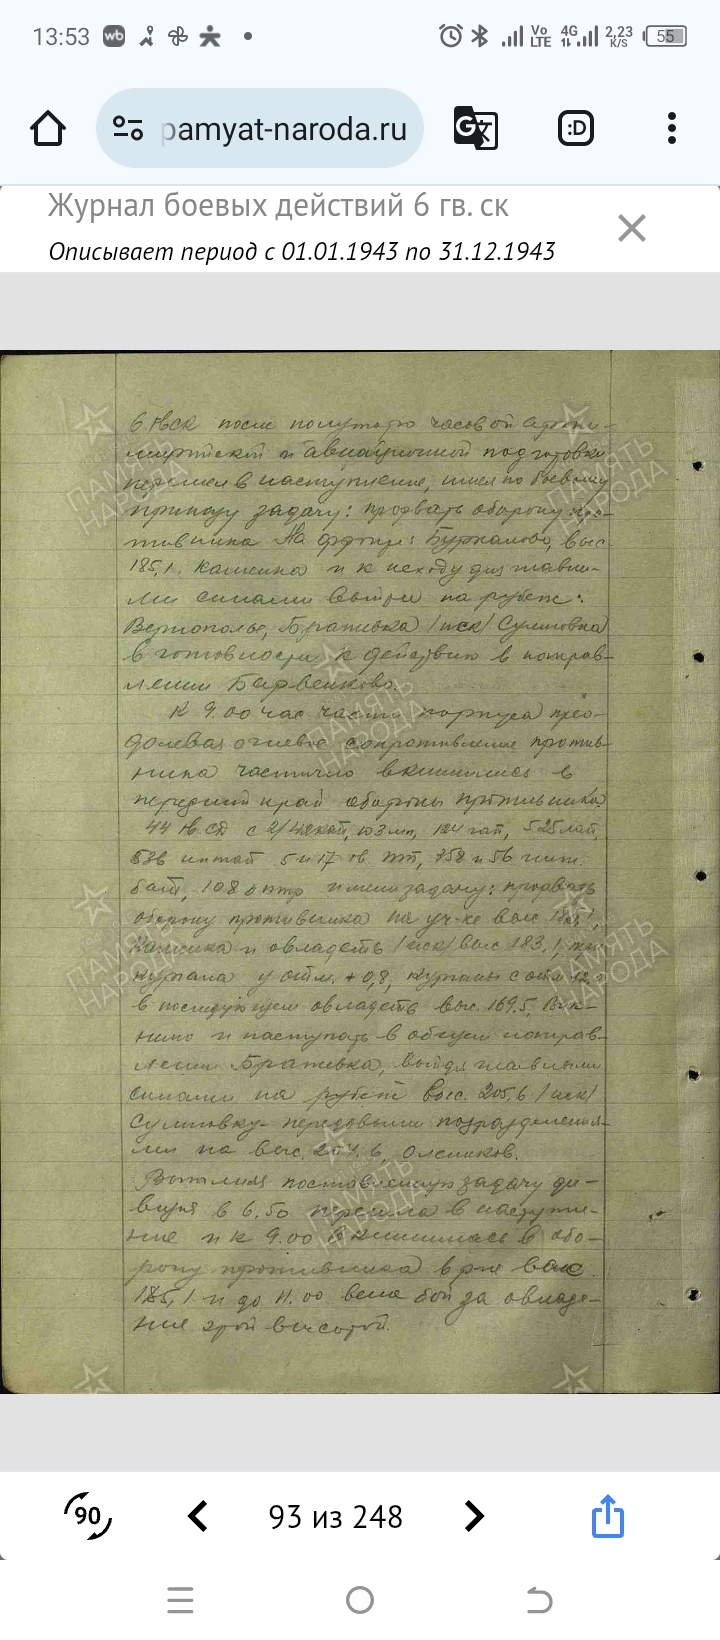 13:53
Vo LTE 4G 2,23 K/S 55
pamyat-naroda.ru
:D
Журнал боевых действий 6 гв. ск
Описывает период с 01.01.1943 по 31.12.1943
6 гвск после полуторо часовой артил-
лерийской и авиационной подготовки
перешел в наступление, имея по боевому
приказу задачу: прорвать оборону про-
тивника На фронте: выс.
185,1. Каменка и к исходу дня главны-
ми силами выйти на рубеж:
Бражевка /иск/ Сулиговка
в готовности к действию в направ-
лении Барвенково.
К 9.00 час части корпуса прео-
долевая огневое сопротивление против-
ника частично вклинились в
передний край обороны противника
44 гв. сд с 525
5 и 17 гв.
108 имели задачу: прорвать
оборону противника на уч-ке выс. 185,1,
Каменка и овладеть /иск/ выс 183,1,
кургана у отм. +0,8, курган с отм
в последующем овладеть выс. 169.5,
и наступать в общем направ-
лении Бражевка, выйдя главными
силами на рубеж выс. 205,6 /иск/
Сулиговку- передовыми подразделения-
ми на выс. 204.6,
Выполняя поставленную задачу ди-
визия в 6.50 перешла в наступле-
ние и к 9.00 вклинилась в обо-
рону противника в р-не выс
185,1. и до 11.00 вела бой за овладе-
ние этой высотой.
ПАМЯТЬ НАРОДА
90
93 из 248